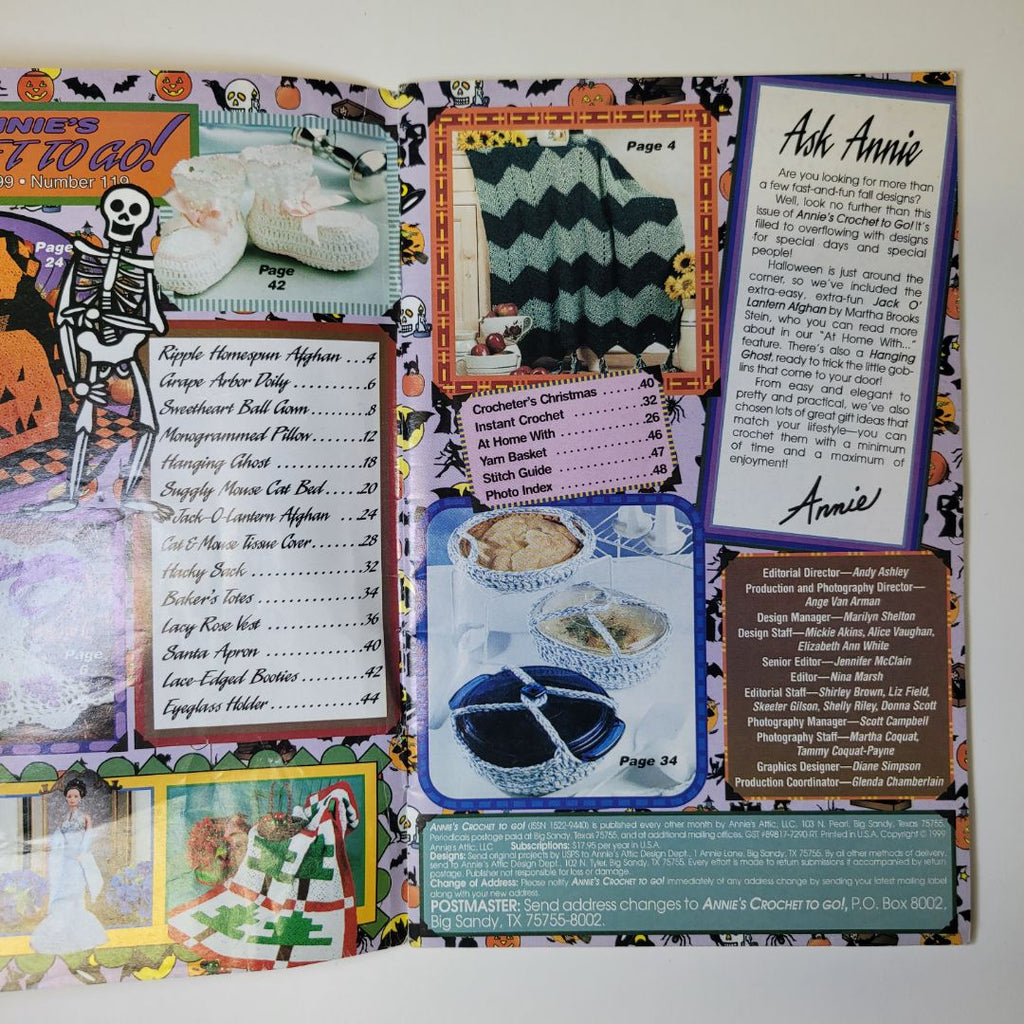 NNIE'S
ET TO GO!
99 • Number 119
Page
24
Page
42
Ripple Homespun Afghan ...4
Grape Arbor Doily ..........6
Sweetheart Ball Gown ........8
Monogrammed Pillow.......12
Hanging Ghost ............18
Snuggly Mouse Cat Bed.....20
Jack-O-Lantern Afghan ...24
Cat & Mouse Tissue Cover......28
Hacky Sack ...............32
Baker's Totes ..............34
Lacy Rose Vest .............36
Santa Apron ..............40
Lace-Edged Booties ........42
Eyeglass Holder ............44
Page
6
Page 4
Crocheter's Christmas .....40
Instant Crochet ..........32
At Home With ............26
Yarn Basket ..............46
Stitch Guide .............47
Photo Index ..............48
Page 34
Ask Annie
Are you looking for more than
a few fast-and-fun fall designs?
Well, look no further than this
issue of Annie's Crochet to Go! It's
filled to overflowing with designs
for special days and special
people!
Halloween is just around the
corner, so we've included the
extra-easy, extra-fun Jack O'
Lantern Afghan by Martha Brooks
Stein, who you can read more
about in our "At Home With..."
feature. There's also a Hanging
Ghost, ready to trick the little gob-
lins that come to your door!
From easy and elegant to
pretty and practical, we've also
chosen lots of great gift ideas that
match your lifestyle—you can
crochet them with a minimum
of time and a maximum of
enjoyment!
Annie
Editorial Director—Andy Ashley
Production and Photography Director—
Ange Van Arman
Design Manager—Marilyn Shelton
Design Staff—Mickie Akins, Alice Vaughan,
Elizabeth Ann White
Senior Editor—Jennifer McClain
Editor—Nina Marsh
Editorial Staff—Shirley Brown, Liz Field,
Skeeter Gilson, Shelly Riley, Donna Scott
Photography Manager—Scott Campbell
Photography Staff—Martha Coquat,
Tammy Coquat-Payne
Graphics Designer—Diane Simpson
Production Coordinator—Glenda Chamberlain
ANNIE'S CROCHET TO GO! (ISSN 1522-9440) is published every other month by Annie's Attic, LLC, 103 N. Pearl, Big Sandy, Texas 75755.
Periodicals postage paid at Big Sandy, Texas 75755, and at additional mailing offices. GST #89817-7290-RT. Printed in U.S.A. Copyright © 1999
Annie's Attic, LLC Subscriptions: $17.95 per year in U.S.A.
Designs: Send original projects by USPS to Annie's Attic Design Dept., 1 Annie Lane, Big Sandy, TX 75755. By all other methods of delivery,
send to Annie's Attic Design Dept., 102 N. Tyler, Big Sandy, TX 75755. Every effort is made to return submissions if accompanied by return
postage. Publisher not responsible for loss or damage.
Change of Address: Please notify ANNIE'S CROCHET TO GO! immediately of any address change by sending your latest mailing label
along with your new address.
POSTMASTER: Send address changes to ANNIE'S CROCHET TO GO!, P.O. Box 8002,
Big Sandy, TX 75755-8002.